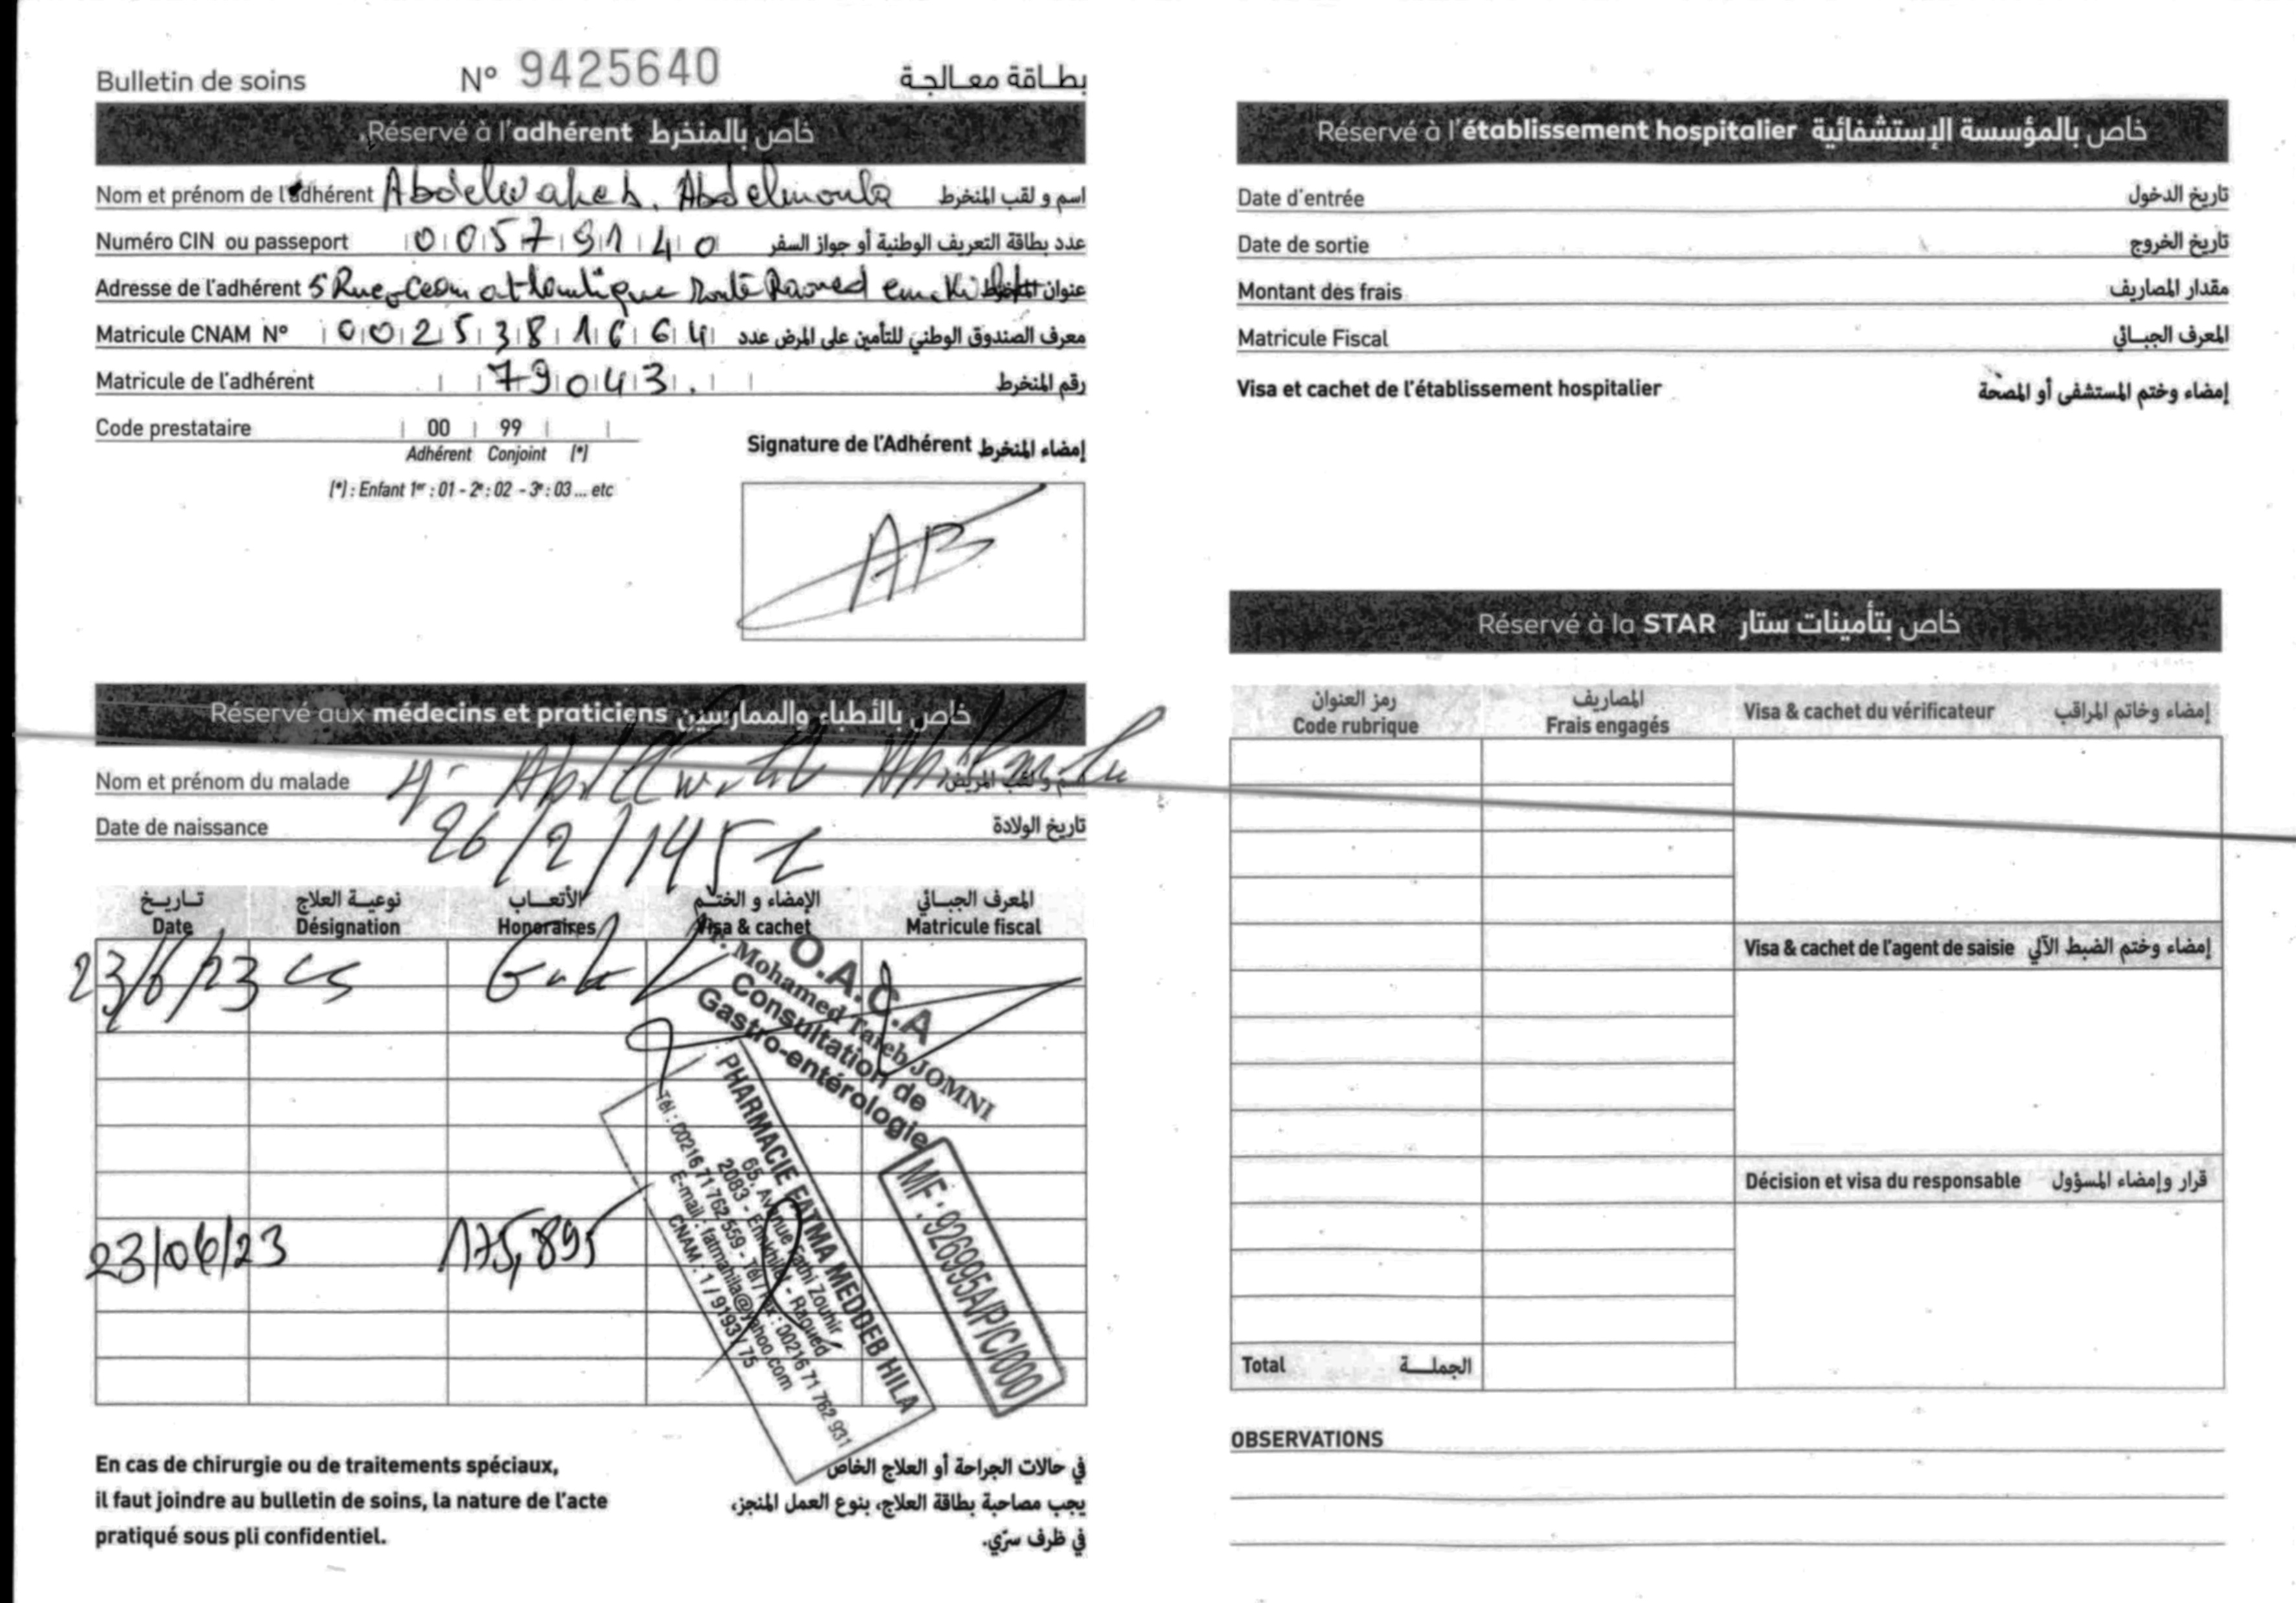 Bulletin de soins N° 9425640 بطاقة معالجة
Réservé à l'adhérent خاص بالمنخرط
Nom et prénom de l'adhérent Abdelwaheb. Abdelmoula اسم و لقب المنخرط
Numéro CIN ou passeport 00579140 عدد بطاقة التعريف الوطنية أو جواز السفر
Adresse de l'adhérent 5 Rue Ocean athlantique Route Raoued عنوان المنخرط
Matricule CNAM N° 0025381664 معرف الصندوق الوطني للتأمين على المرض عدد
Matricule de l'adhérent 79043 رقم المنخرط
Code prestataire 00 99
Adhérent Conjoint (*)
(*) : Enfant 1er : 01 - 2e : 02 - 3e : 03 ... etc
Signature de l'Adhérent إمضاء المنخرط
AB
Réservé aux médecins et praticiens خاص بالأطباء والممارسين
Nom et prénom du malade اسم و لقب المريض
Date de naissance تاريخ الولادة
تاريخ نوعية العلاج الأتعاب الإمضاء و الختم المعرف الجبائي
Date Désignation Honoraires Visa & cachet Matricule fiscal
23/6/23 CS
O.A.C.A
Dr. Mohamed Taieb JOMNI
Consultation de
Gastro-entérologie
23/06/23 175,895
PHARMACIE FATMA MEDDEB HILA
65, Avenue Fathi Zouhir
2083 - Ennkhilet - Raoued
Tél : 00216 71 762 559 - Tél / Fax : 00216 71 762 931
E-mail : fatmahila@yahoo.com
CNAM : 1 / 9193 / 75
MF : 926995A/P/C/000
En cas de chirurgie ou de traitements spéciaux,
il faut joindre au bulletin de soins, la nature de l'acte
pratiqué sous pli confidentiel.
في حالات الجراحة أو العلاج الخاص
يجب مصاحبة بطاقة العلاج، بنوع العمل المنجز،
في ظرف سرّي.
Réservé à l'établissement hospitalier خاص بالمؤسسة الإستشفائية
Date d'entrée تاريخ الدخول
Date de sortie تاريخ الخروج
Montant des frais مقدار المصاريف
Matricule Fiscal المعرف الجبائي
Visa et cachet de l'établissement hospitalier إمضاء وختم المستشفى أو المصحة
Réservé à la STAR خاص بتأمينات ستار
رمز العنوان المصاريف
Code rubrique Frais engagés Visa & cachet du vérificateur إمضاء وخاتم المراقب
Visa & cachet de l'agent de saisie إمضاء وختم الضبط الآلي
Décision et visa du responsable قرار وإمضاء المسؤول
Total الجملة
OBSERVATIONS